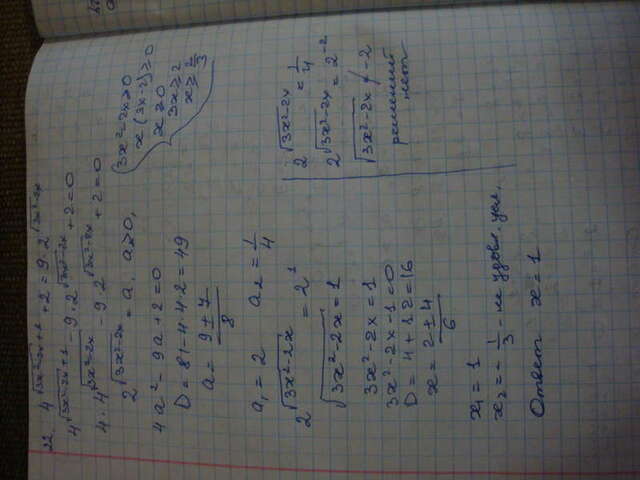 22. 4^{\sqrt{3x²-2x}+1} + 2 = 9·2^{\sqrt{3x²-2x}}
4^{\sqrt{3x²-2x}+1} - 9·2^{\sqrt{3x²-2x}} + 2 = 0
4·4^{\sqrt{3x²-2x}} - 9·2^{\sqrt{3x²-2x}} + 2 = 0
2^{\sqrt{3x²-2x}} = a, a>0,
4a² - 9a + 2 = 0
D = 81 - 4·4·2 = 49
a = \frac{9±7}{8}
a₁ = 2 a₂ = \frac{1}{4}
2^{\sqrt{3x²-2x}} = 2¹
\sqrt{3x²-2x} = 1
3x² - 2x = 1
3x² - 2x - 1 = 0
D = 4 + 12 = 16
x = \frac{2±4}{6}
x₁ = 1
x₂ = -\frac{1}{3} - не удовл. усл.
Ответ x = 1
3x² - 2x ≥ 0
x(3x-2) ≥ 0
x ≥ 0
3x ≥ 2
x ≥ \frac{2}{3}
2^{\sqrt{3x²-2x}} = \frac{1}{4}
2^{\sqrt{3x²-2x}} = 2^{-2}
\sqrt{3x²-2x} ≠ -2
решений
нет